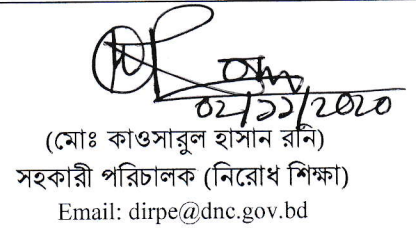 ০২/১১/২০২০
(মোঃ কাওসারুল হাসান রনি)
সহকারী পরিচালক (নিরোধ শিক্ষা)
Email: dirpe@dnc.gov.bd